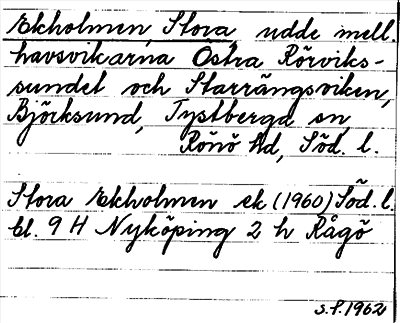 Ekholmen, Stora, udde mell.
havsvikarna Östra Rörviks-
sundet och Starrängsviken,
Björksund, Tystberga sn,
Rönö hd, Söd. l.
Stora Ekholmen ek (1960) Söd. l.
bl. 9 H Nyköping 2 h Rågö
S.P. 1962